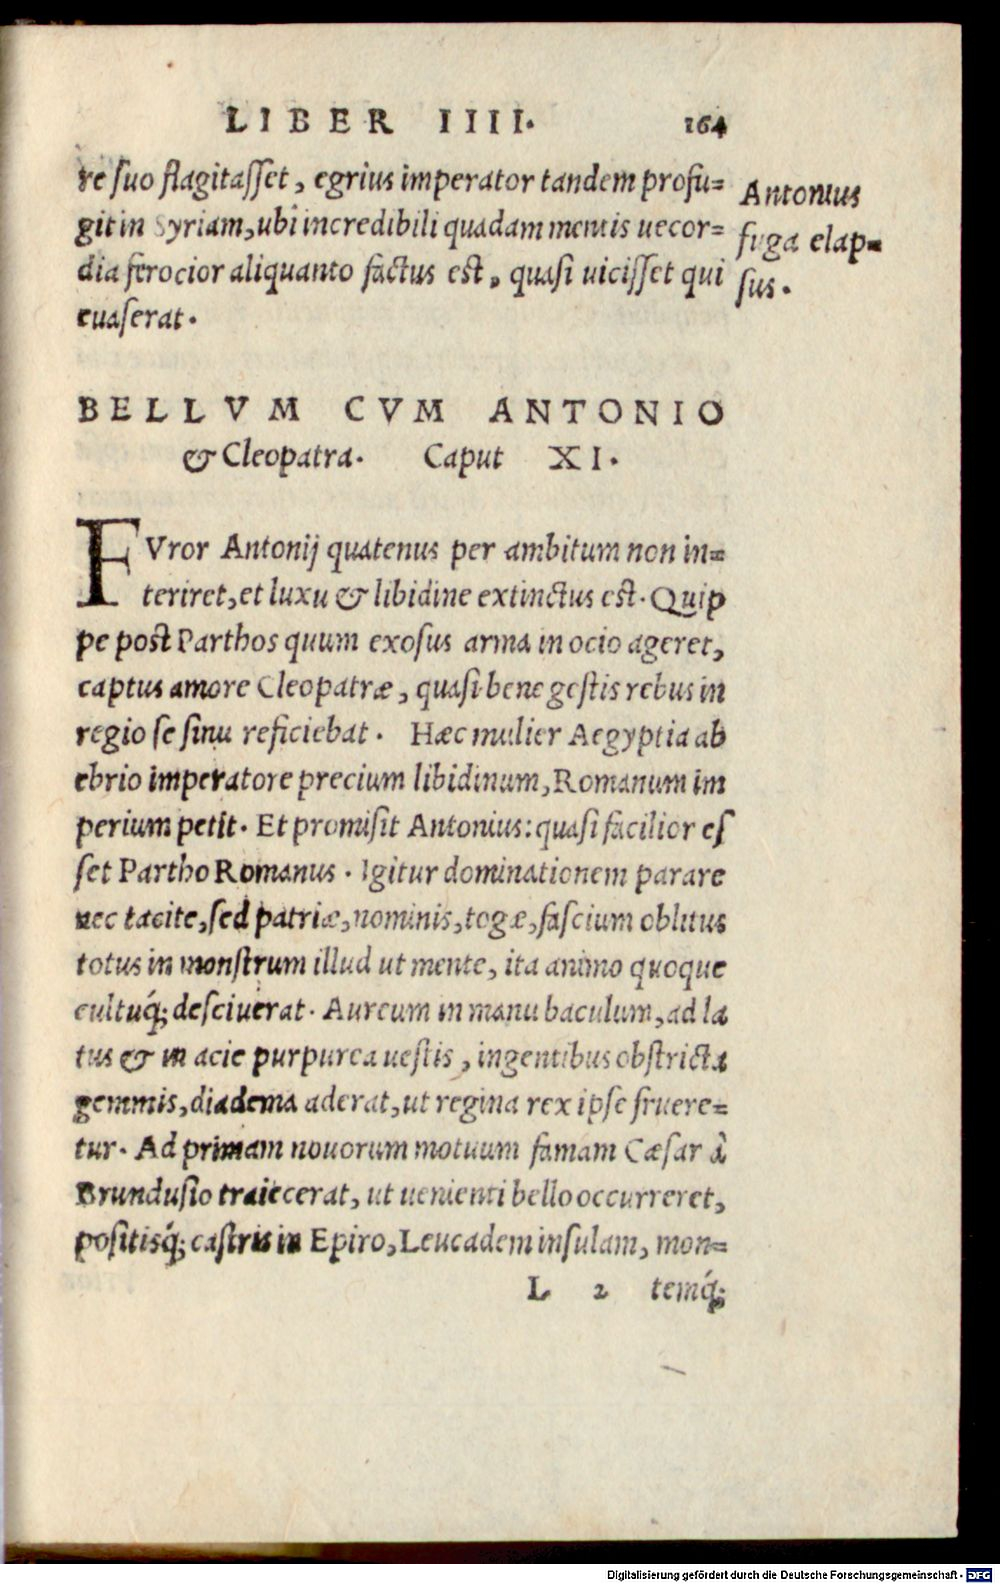 LIBER IIII. 164
re suo flagitasset, egrius imperator tandem profu=
git in Syriam, ubi incredibili quadam mentis uecor=
dia ferocior aliquanto factus est, quasi uicisset qui
euaserat.
Antonius
fuga elap=
sus.
BELLVM CVM ANTONIO
& Cleopatra. Caput XI.
FVror Antonij quatenus per ambitum non in=
teriret, et luxu & libidine extinctus est. Quip
pe post Parthos quum exosus arma in ocio ageret,
captus amore Cleopatræ, quasi bene gestis rebus in
regio se sinu reficiebat. Hæc mulier Aegyptia ab
ebrio imperatore precium libidinum, Romanum im
perium petit. Et promisit Antonius: quasi facilior es
set Partho Romanus. Igitur dominationem parare
nec tacite, sed patriæ, nominis, togæ, fascium oblitus
totus in monstrum illud ut mente, ita animo quoque
cultuq́; desciuerat. Aureum in manu baculum, ad la
tus & in acie purpurea uestis, ingentibus obstricta
gemmis, diadema aderat, ut regina rex ipse fruere=
tur. Ad primam nouorum motuum famam Cæsar à
Brundusio traiecerat, ut uenienti bello occurreret,
positisq́; castris in Epiro, Leucadem insulam, mon=
L 2 temq́;
Digitalisierung gefördert durch die Deutsche Forschungsgemeinschaft - DFG